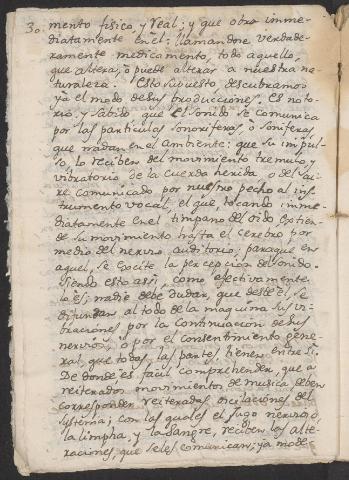 30.
mento fisico, y Real; y que obra imme-
diatamente en èl: llamandose verdade-
ramente medicamento, todo aquello,
que altera, ò puede alterar a nuestra na-
turaleza. Esto supuesto, descubramos
ya el modo de sus producciones. Es noto-
rio, y sabido que el sonido se comunica
por las particulas sonoriferas, ò soniferas,
que nadan en el ambiente: que su impul-
so, lo reciben del movimiento tremulo, y
vibratorio de la cuerda herida ò del ai-
re comunicado por nuestro pecho al ins-
trumento vocal el que, tocando imme-
diatamente en el timpano del oido extien-
de su movimiento hasta el cerebro por
medio del nervio auditorio; paraque en
aquel, se excite la percepcion del sonido.
Siendo esto assi, como efectivamente
lo es; nadie debe dudar, que desde èl, se
difundan al todo de la maquina sus vi-
braciones por la continuacion de sus
nervios, ò por el consentimiento gene-
ral, que todas las partes tienen entre si.
De donde es facil comprehender, que a
reiterados movimientos de musica, deben
corresponder reiteradas oscilaciones del
systema; con las quales el sugo nervioso,
la limpha, y la sangre, reciben las alte-
raciones, que seles comunican; ya mode-